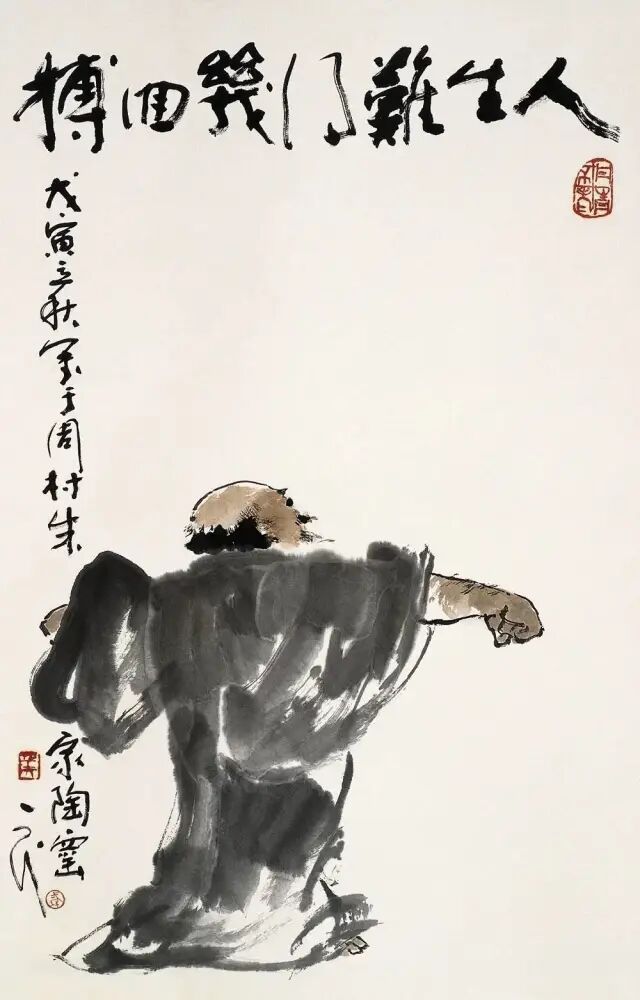 人生難得幾回搏
戊寅立秋寫于周村朱
家陶窑